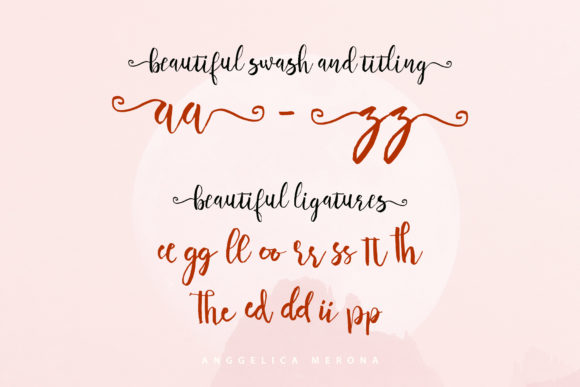 beautiful swash and titling
aa - zz
beautiful ligatures
ee gg ll oo rr ss tt th
the ed dd ii pp
ANGGELICA MERONA